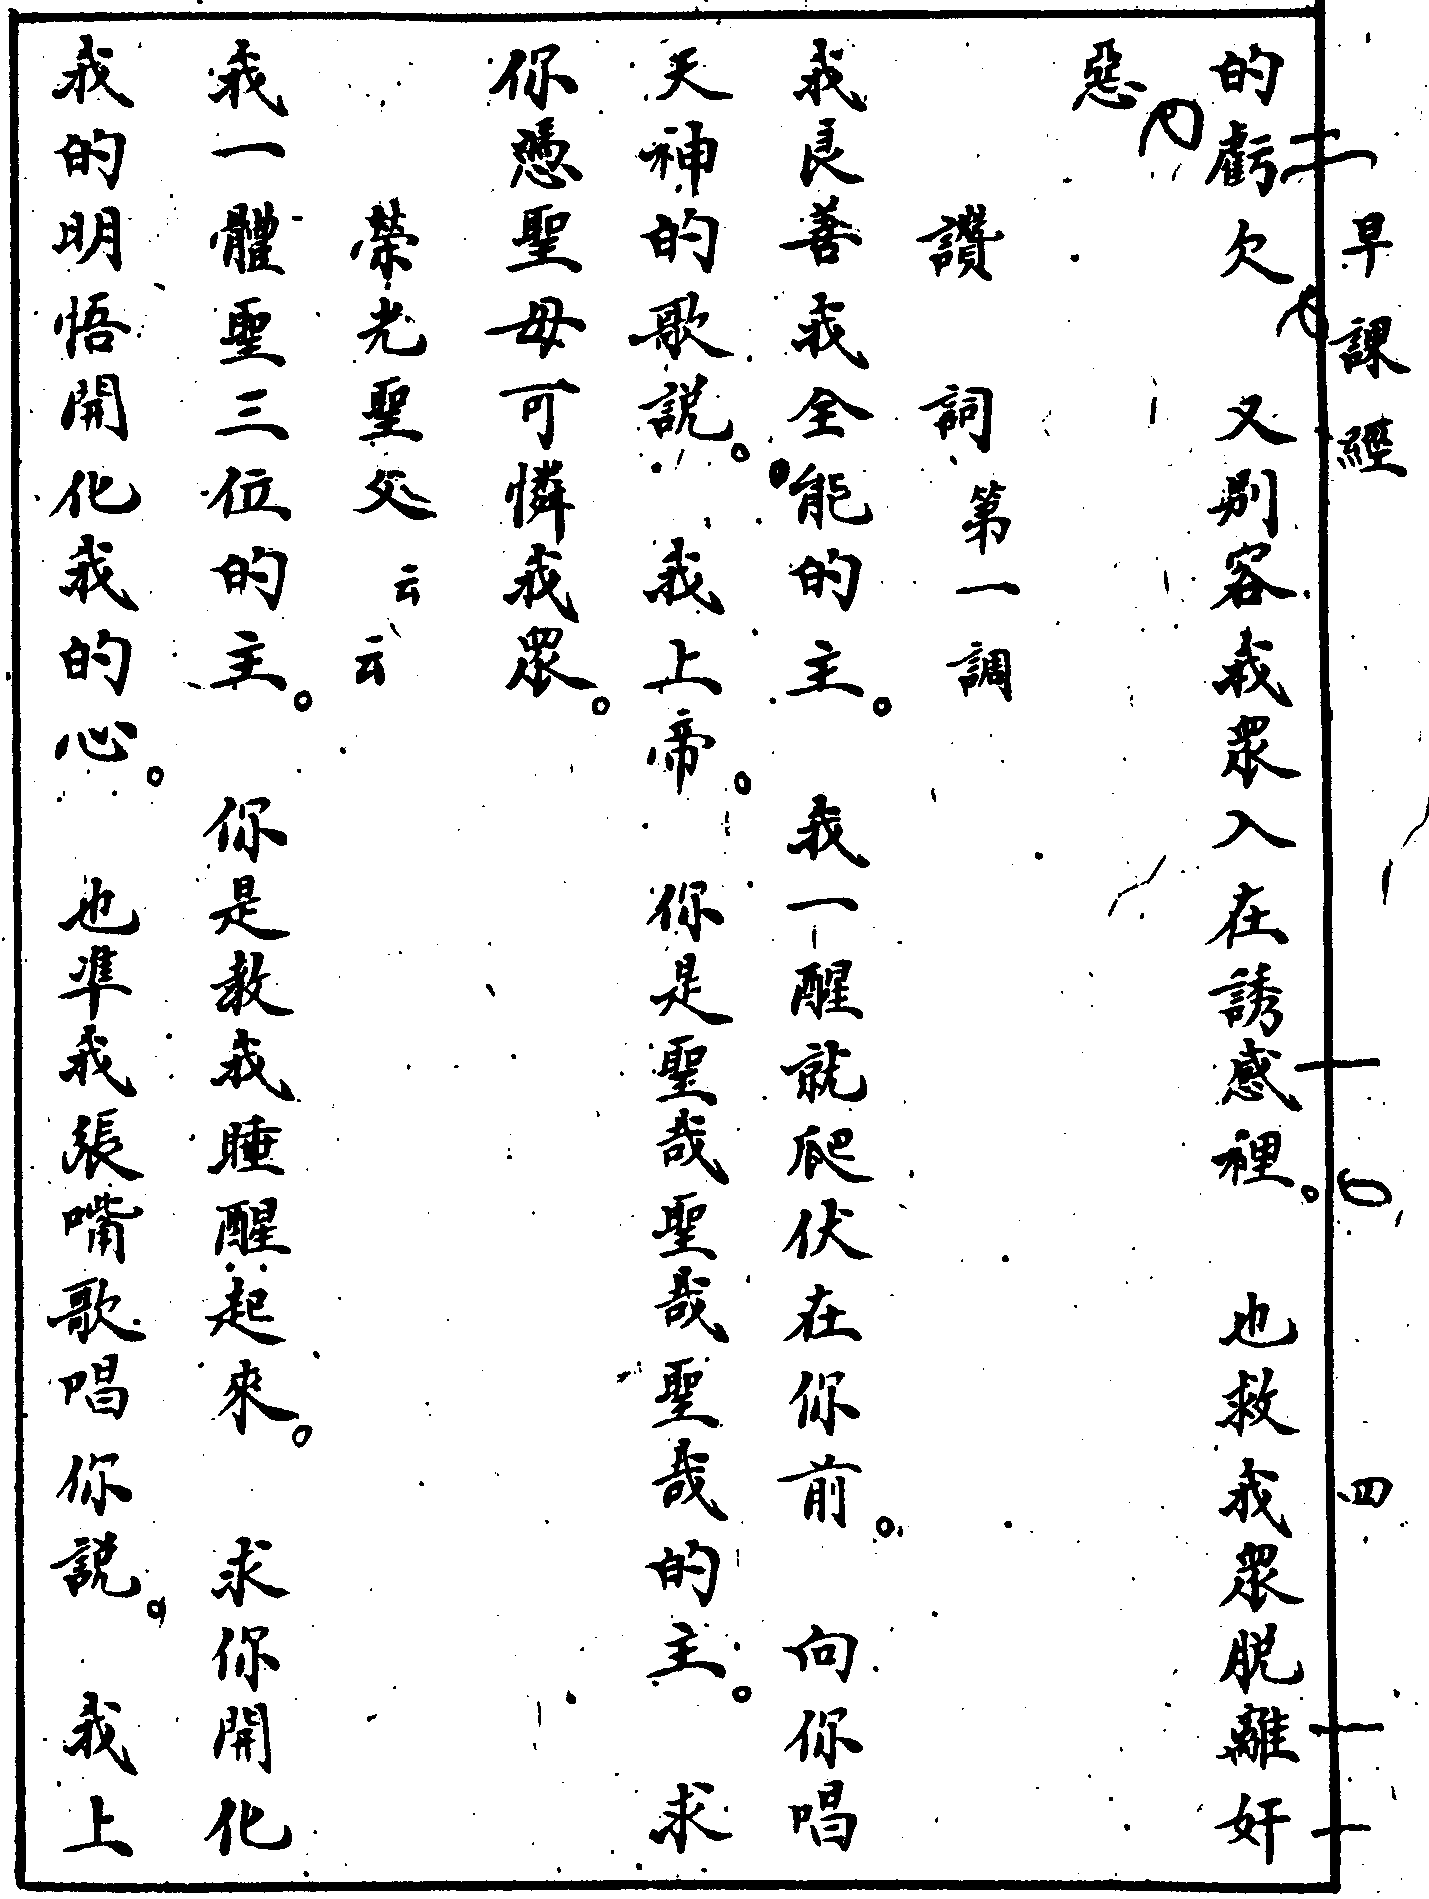 早課經 四
的虧欠 又別容我眾入在誘惑裡。 也救我眾脫離奸
惡
讚 詞 第一調
我良善我全能的主。 我一醒就爬伏在你前。 向你唱
天神的歌說。 我上帝。 你是聖哉聖哉聖哉的主。 求
你憑聖母可憐我眾。
榮光聖父云云
我一體聖三位的主。 你是教我睡醒起來。 求你開化
我的明悟開化我的心。 也準我張嘴歌唱你說。 我上